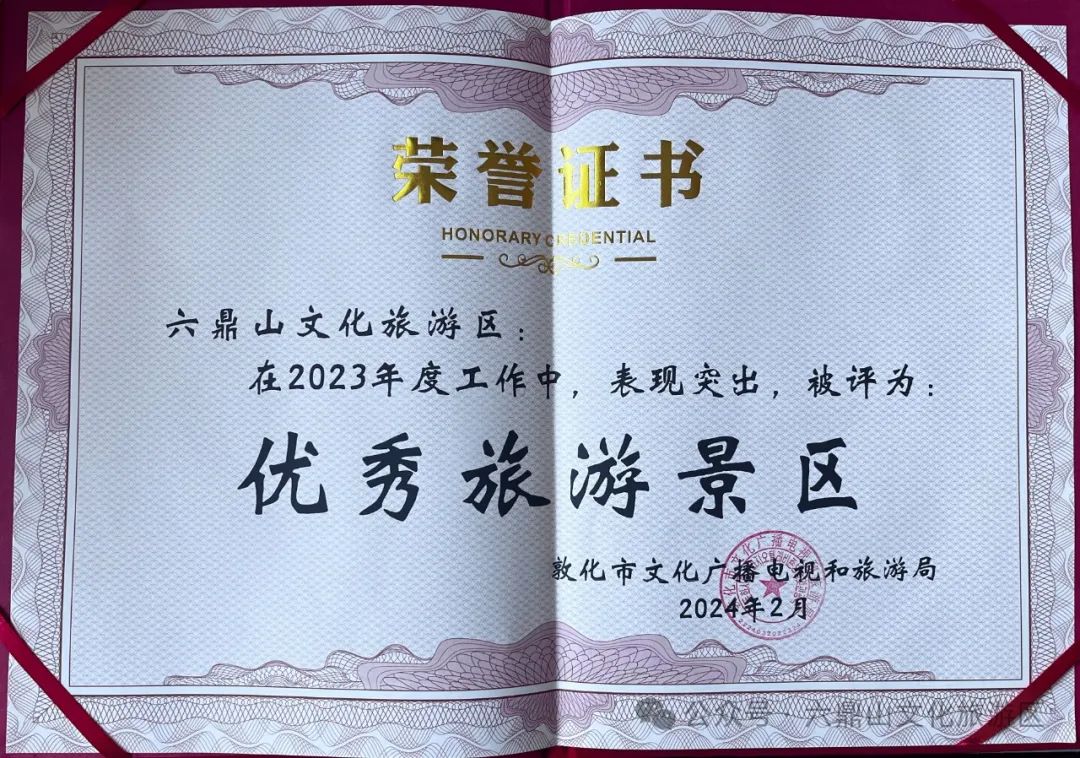 荣誉证书
HONORARY CREDENTIAL
六鼎山文化旅游区：
在2023年度工作中，表现突出，被评为：
优秀旅游景区
敦化市文化广播电视和旅游局
2024年2月
公众号·六鼎山文化旅游区